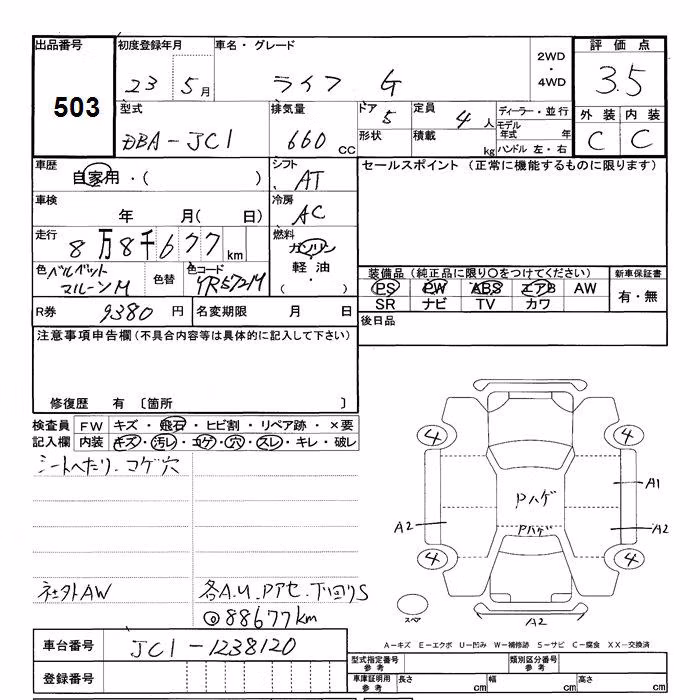 出品番号 初度登録年月 車名・グレード 2WD 評価点
503 23 5月 ライフ G ・ 3.5
4WD
型式 排気量 ドア 5 定員 4人 ディーラー・並行 外装 内装
DBA-JC1 660 CC 形状 積載 kg モデル年式 年 C C
ハンドル 左・右
車歴 シフト セールスポイント (正常に機能するものに限ります)
自家用・( ) AT
車検 冷房
年 月( 日) AC
走行 燃料
8万8千677km ガソリン
色 ベルベット 色替 色コード 軽油・ 装備品 (純正品に限り○をつけてください) 新車保証書
マルーンM YR572M ( ) PS PW ABS エアB AW 有・無
SR ナビ TV カワ
R券 9380 円 名変期限 月 日 後日品
注意事項申告欄 (不具合内容等は具体的に記入して下さい)
修復歴 有 〔箇所 〕
検査員 FW キズ・飛石・ヒビ割・リペア跡・×要
記入欄 内装 キズ・汚レ・コゲ・穴・スレ・キレ・破レ
シートへたり. コゲ穴
4 4
Pハゲ A1
A2 Pハゲ A2
4 4
社外AW 各A.U.Pアセ.下回りS
◎88677km スペア A2
車台番号 JC1-1238120 A-キズ E-エクボ U-凹み W-補修跡 S-サビ C-腐食 XX-交換済
型式指定番号 参考 類別区分番号 参考
登録番号 車庫証明用 参考 長さ cm 幅 cm 高さ cm